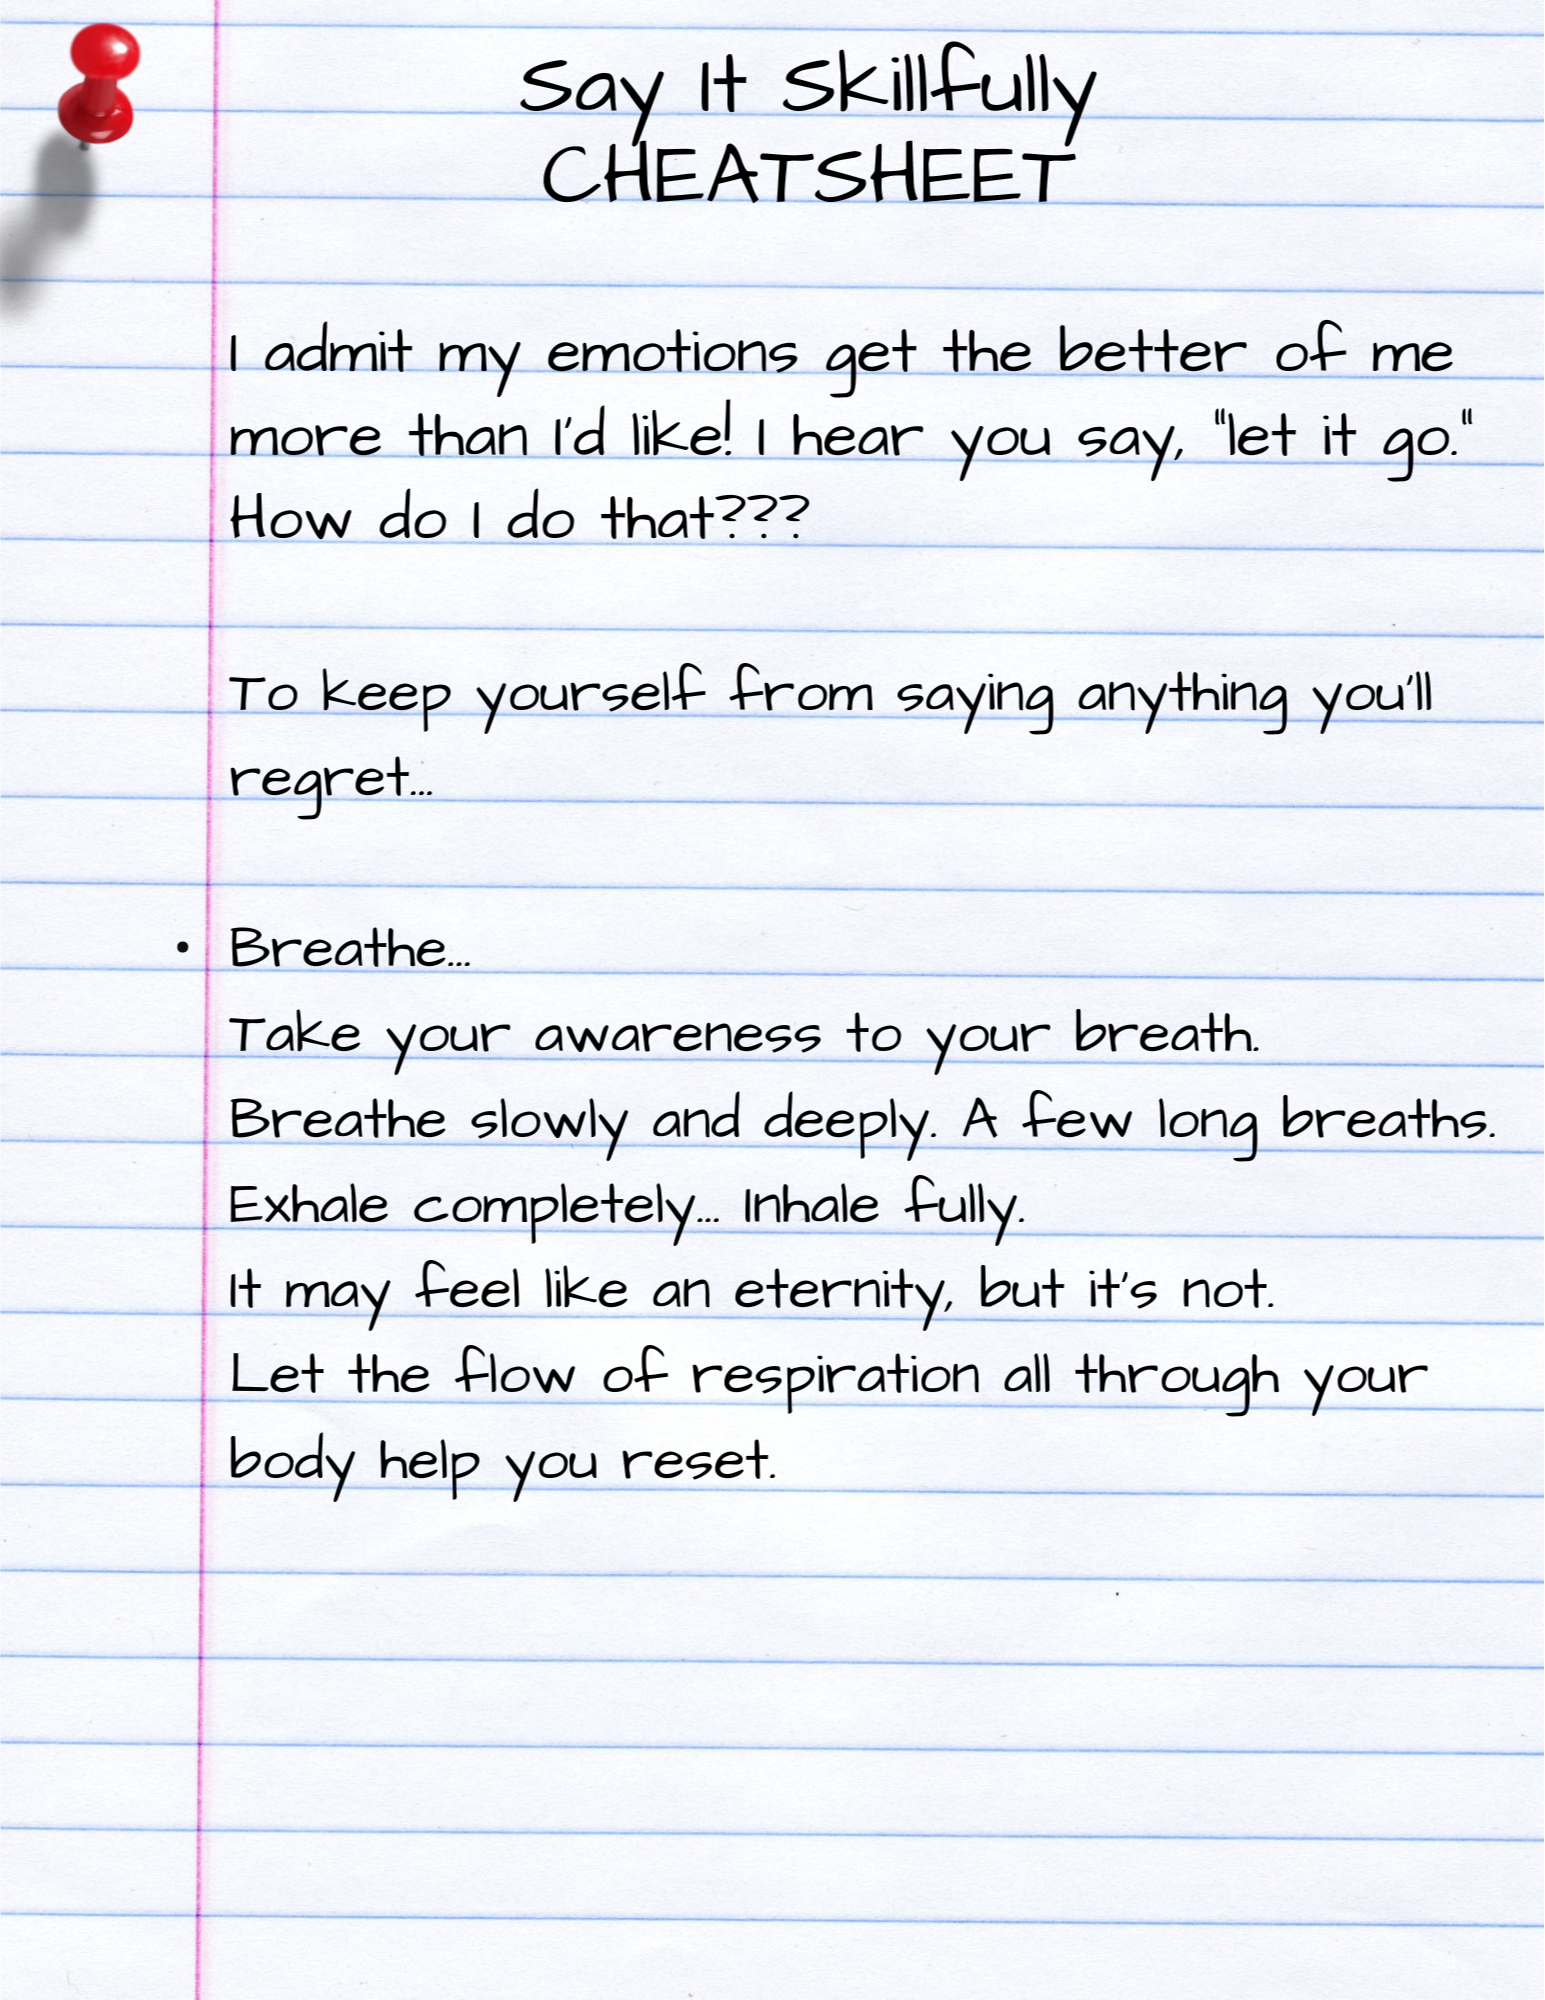 Say It Skillfully
CHEATSHEET
I admit my emotions get the better of me
more than I'd like! I hear you say, "let it go."
How do I do that???
To keep yourself from saying anything you'll
regret...
• Breathe...
Take your awareness to your breath.
Breathe slowly and deeply. A few long breaths.
Exhale completely... Inhale fully.
It may feel like an eternity, but it's not.
Let the flow of respiration all through your
body help you reset.